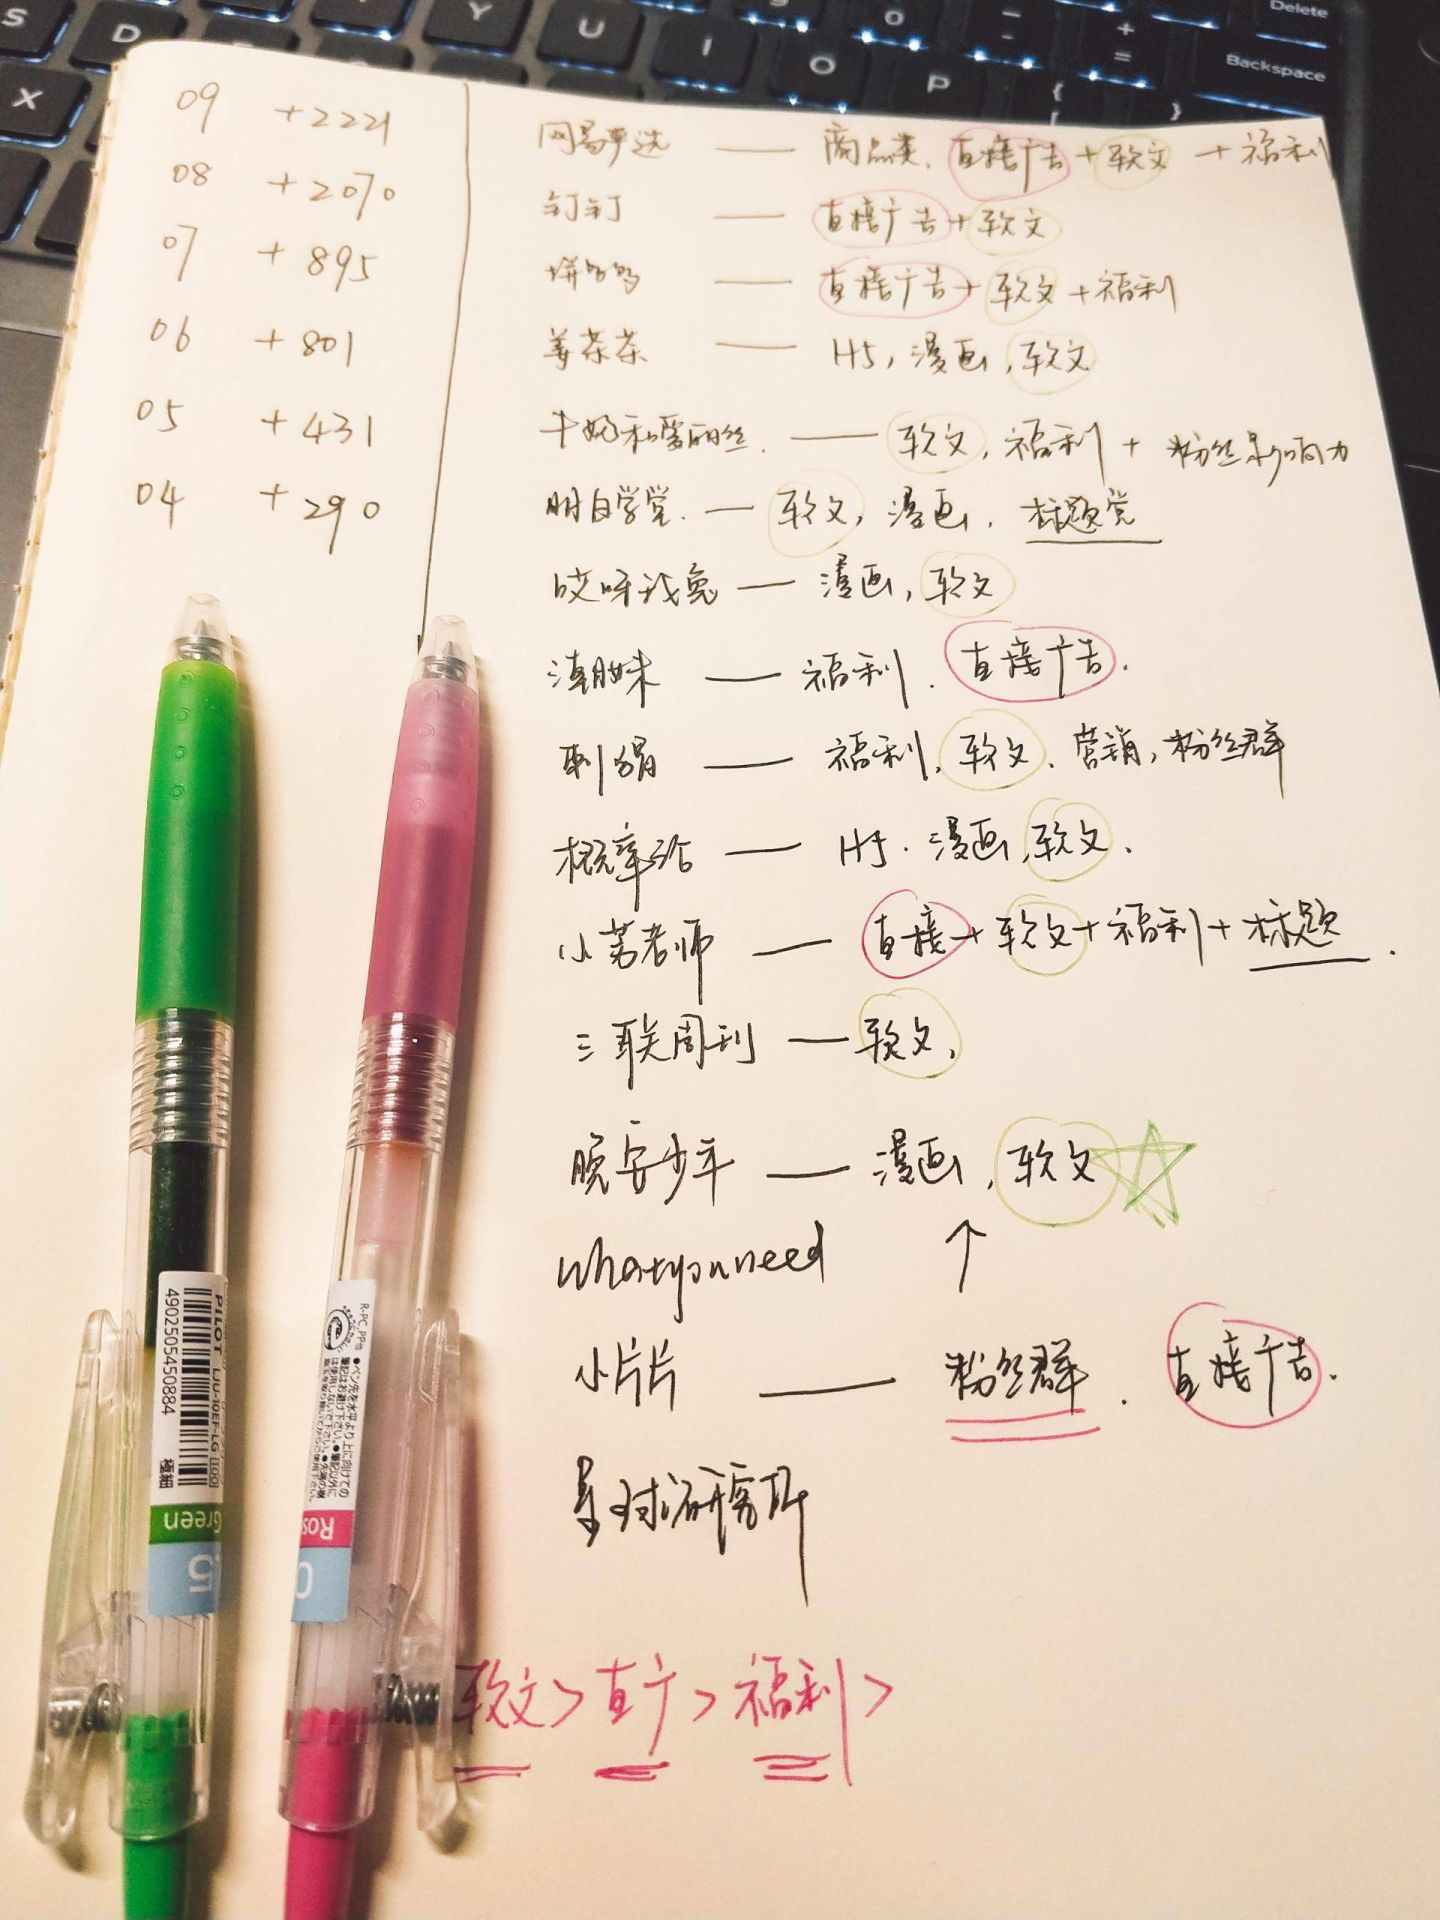 S D X Y U I O P Delete Backspace
09 +2221
08 +2070
07 +895
06 +801
05 +431
04 +290
网易严选 — 商品类、直接广告+软文+福利
钉钉 — 直接广告+软文
拼多多 — 直接广告+软文+福利
姜茶茶 — H5，漫画，软文
牛奶和爱丽丝. — 软文，福利+粉丝影响力
明白学堂. — 软文，漫画，标题党
哎呀我兔 — 漫画，软文
潮妹 — 福利、直接广告.
刺猬 — 福利、软文、营销，粉丝群
概率论 — H5. 漫画，软文.
小茗老师 — 直接+软文+福利+标题.
三联周刊 — 软文，
晚安少年 — 漫画，软文
whatyouneed ↑
小片片 — 粉丝群. 直接广告.
星球研究所
软文>直广>福利>
PILOT LJU-10EF-LG [100]
4902505450884 極細
Green
R-PC,PP他
●ペン先を水平より上に向けての